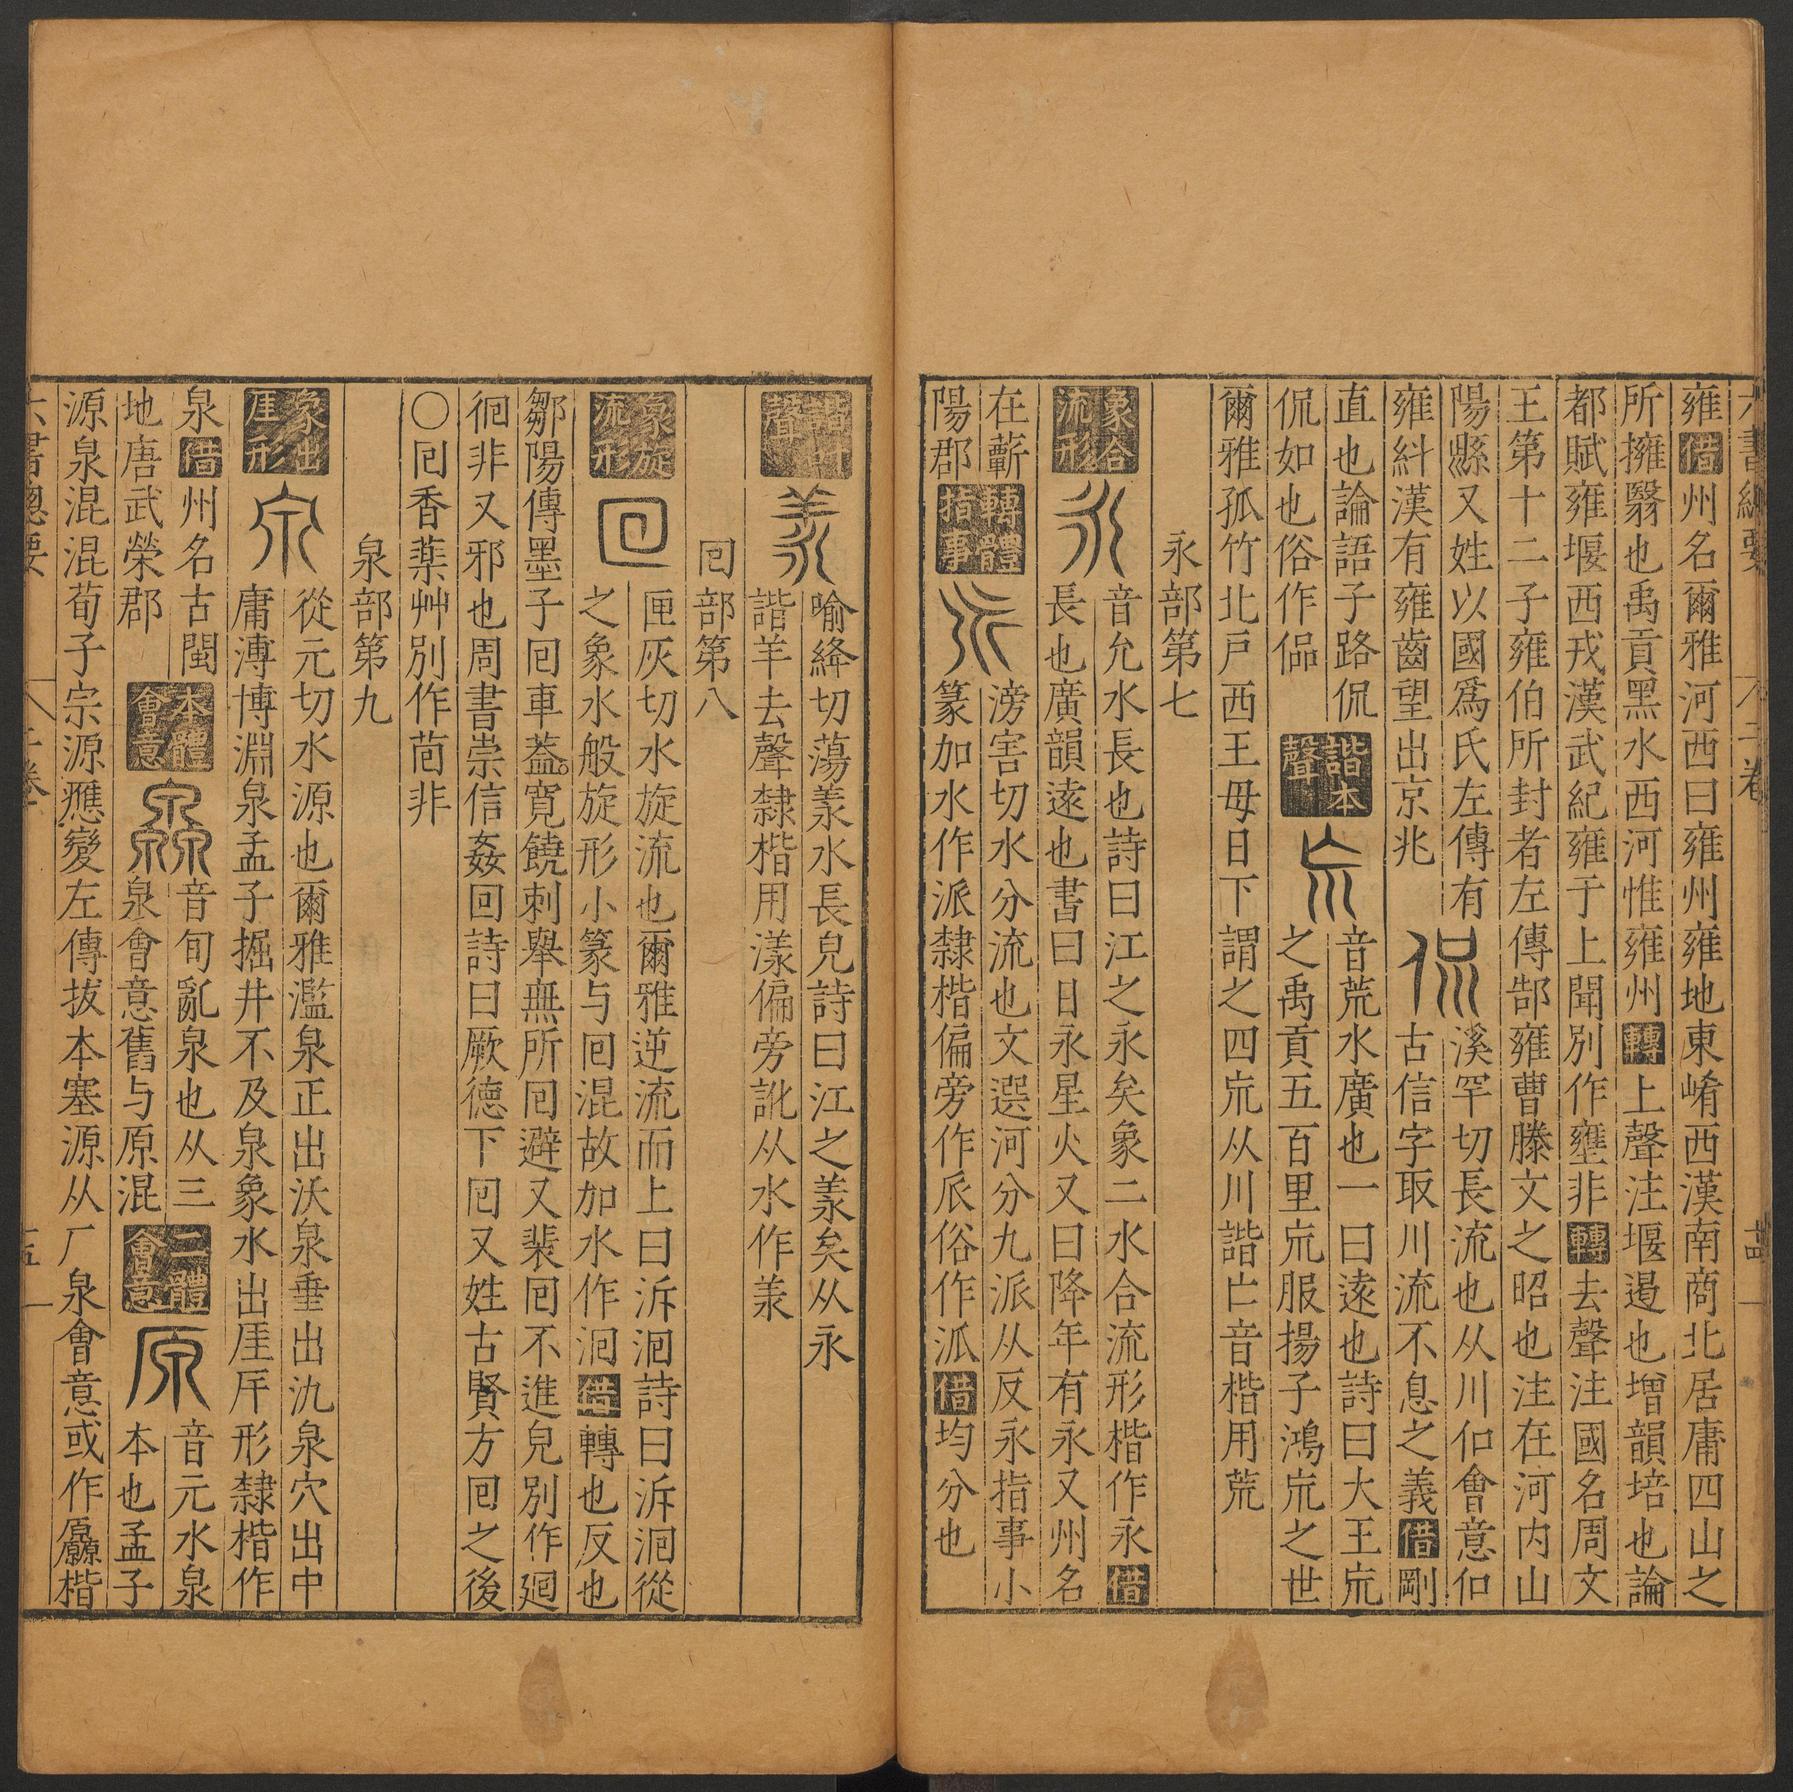 六書總要
二卷
雍借州名爾雅河西曰雍州雍地東崤西漢南商北居庸四山之
所擁翳也禹貢黑水西河惟雍州轉上聲注堰遏也增韻培也論
都賦雍堰西戎漢武紀雍于上聞別作壅非轉去聲注國名周文
王第十二子雍伯所封者左傳郜雍曹滕文之昭也注在河内山
陽縣又姓以國爲氏左傳有
雍糾漢有雍齒望出京兆
侃
溪罕切長流也从川㐰會意㐰
古信字取川流不息之義借剛
直也論語子路侃
侃如也俗作偘
諧本聲
巟
音荒水廣也一曰遠也詩曰大王巟
之禹貢五百里巟服揚子鴻巟之世
爾雅孤竹北戶西王毋日下謂之四巟从川諧亡音楷用荒
永部第七
象合流形
永
音允水長也詩曰江之永矣象二水合流形楷作永借
長也廣韻遠也書曰日永星火又曰降年有永又州名
在蘄
陽郡
轉體指事
𠂢
滂害切水分流也文選河分九派从反永指事小
篆加水作派隸楷偏旁作𠂢俗作派借均分也
諧聲
羕
喻絳切蕩羕水長皃詩曰江之羕矣从永
諧羊去聲隸楷用漾偏旁訛从水作羕
囘部第八
象旋流形
囘
匣灰切水旋流也爾雅逆流而上曰泝洄詩曰泝洄從
之象水般旋形小篆与囘混故加水作洄借轉也反也
鄒陽傳墨子囘車葢寬饒刺舉無所囘避又裴囘不進皃別作廻
徊非又邪也周書崇信姦回詩曰厥德下囘又姓古賢方囘之後
○囘香藥艸別作茴非
泉部第九
象出厓形
泉
從元切水源也爾雅濫泉正出沃泉垂出氿泉穴出中
庸溥博淵泉孟子掘井不及泉象水出厓厈形隸楷作
泉借州名古閩
地唐武榮郡
本體會意
灥
音旬亂泉也从三
泉會意舊与原混
二體會意
原
音元水泉
本也孟子
源泉混混荀子宗源應變左傳拔本塞源从厂泉會意或作厵楷
六書總要
二卷